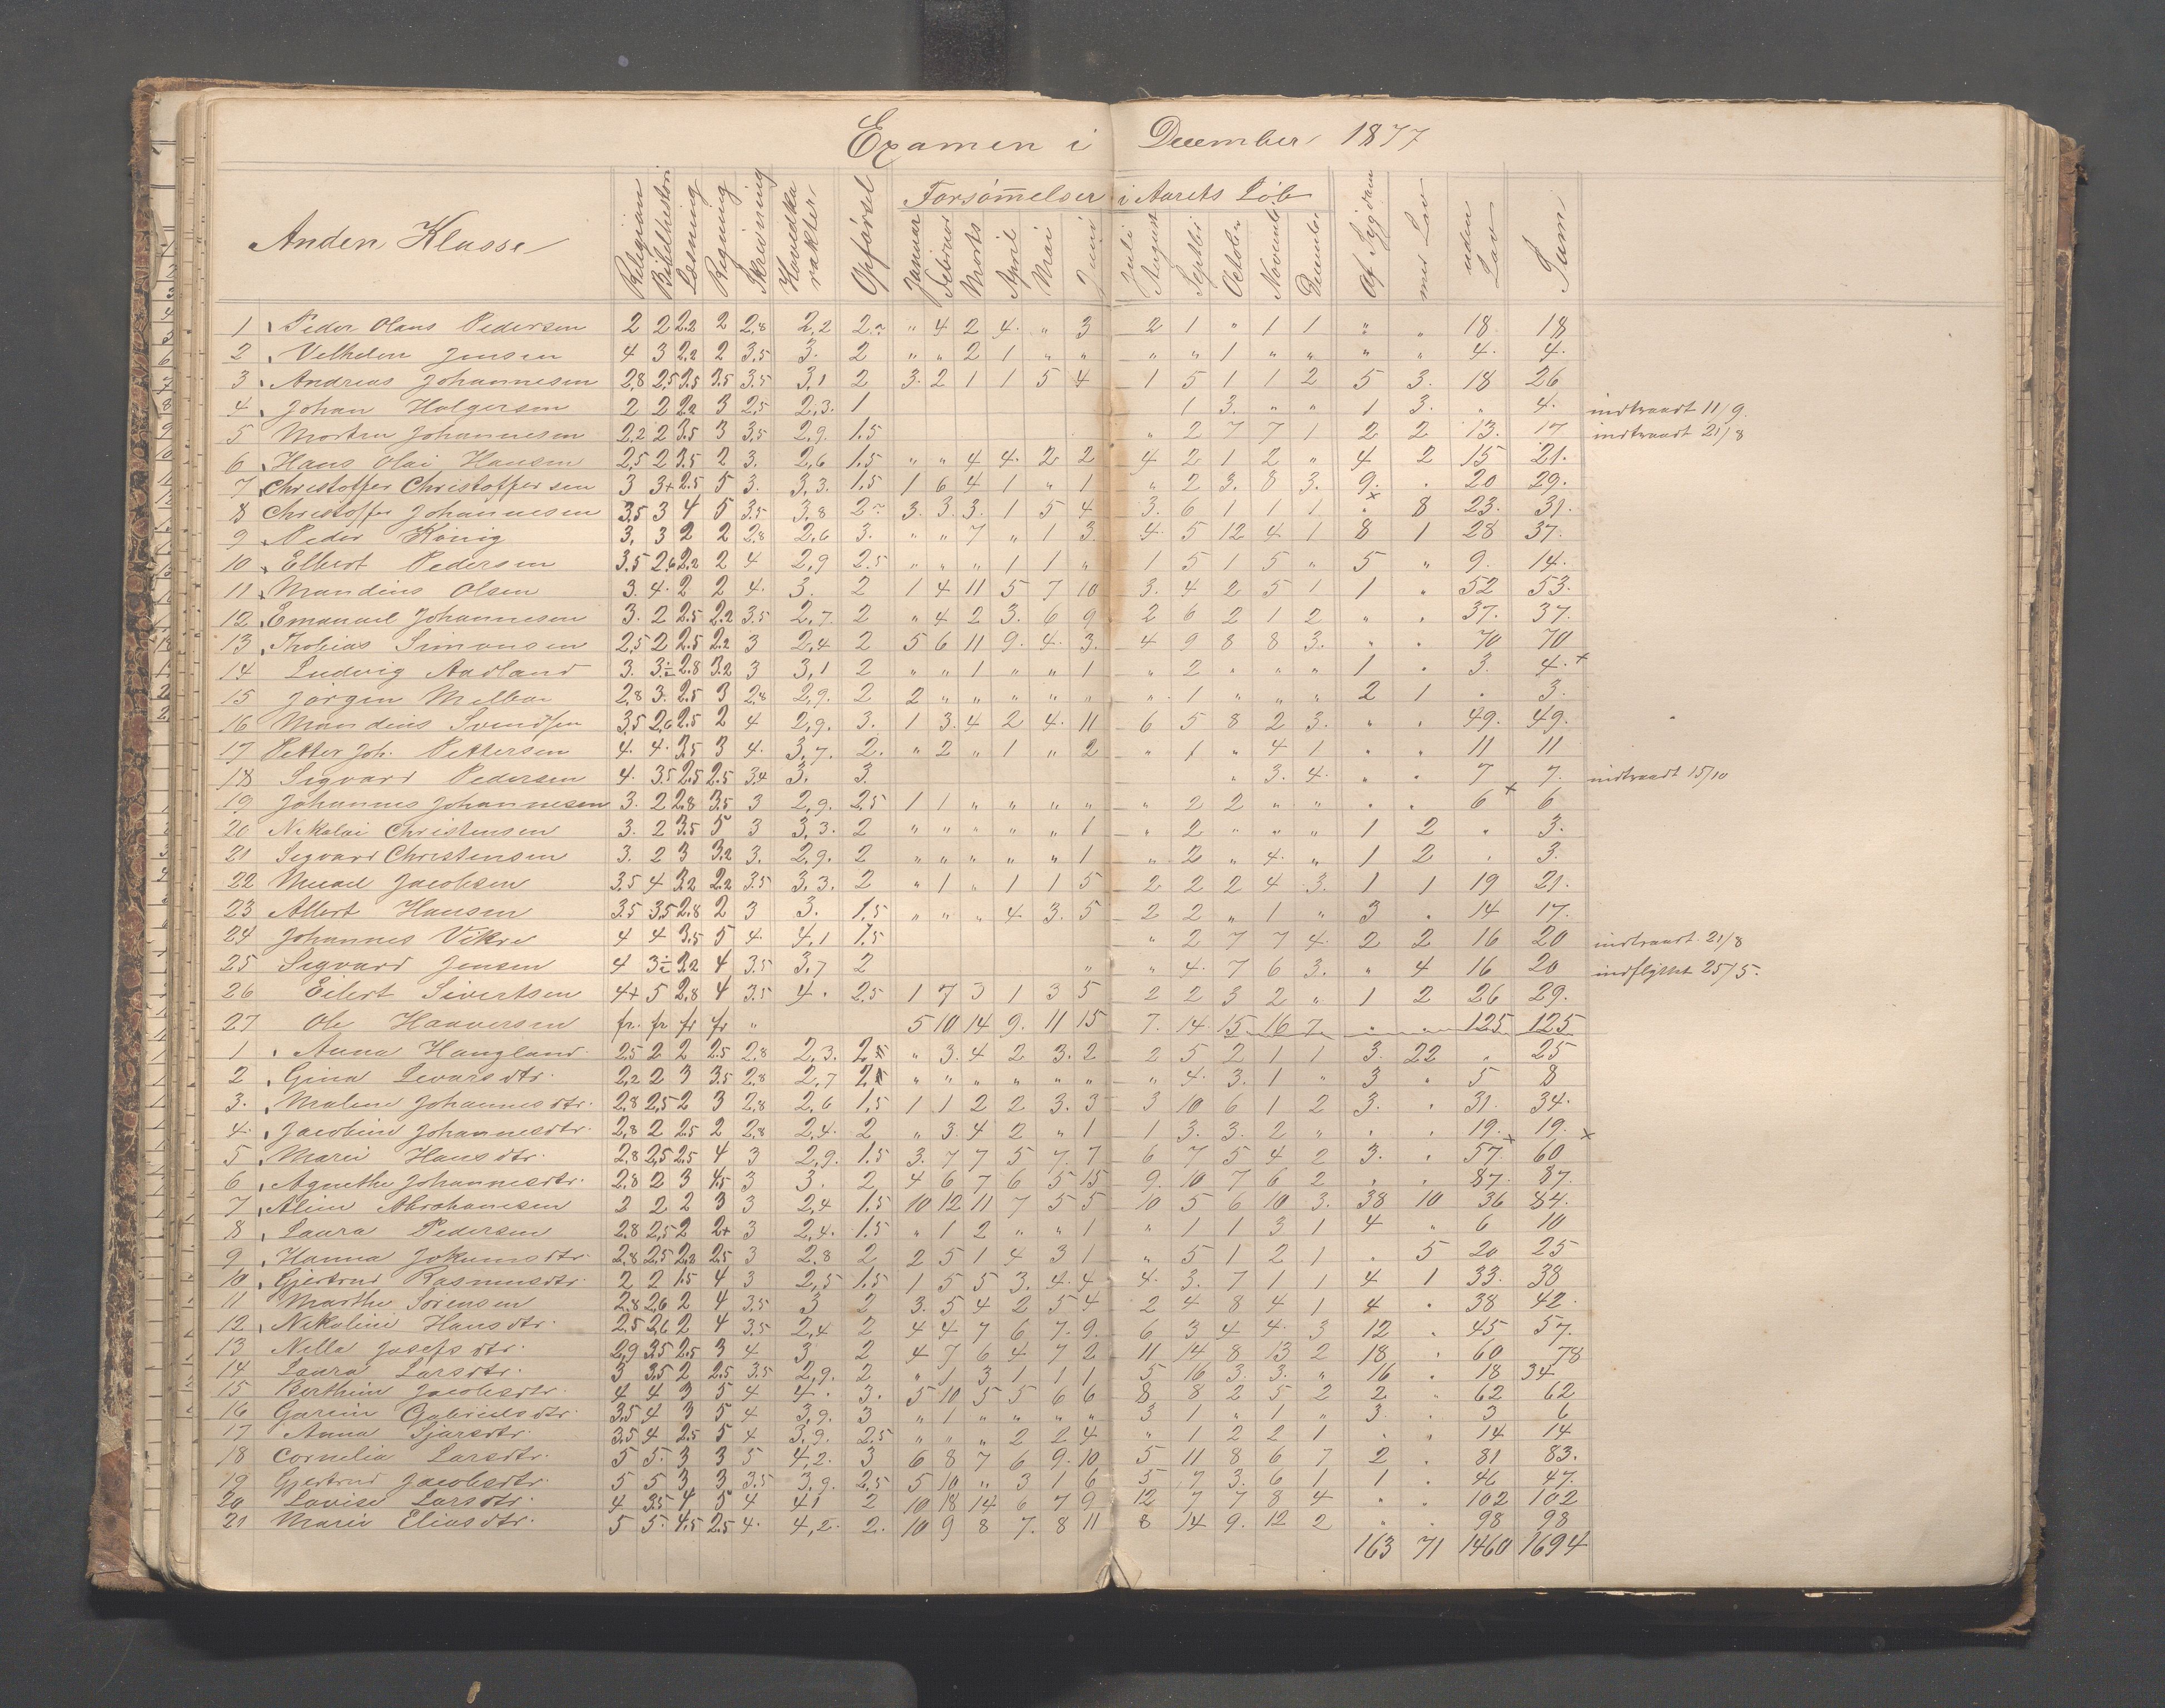 Examen i December 1877
Anden Klasse Religion Bibelhistori Læsning Regning Skrivning Hovedka rakter Opførsel Forsømmelser i Aarets Løb Januar Februar Marts April Mai Juni Juli August Septbr Octobr Novembr Decembr Af Sygdom med Lov uden Lov Sum
1 Peder Olaus Pedersen 2 2 2.2 2 2,8 2,2 2 " 4 2 4. " 3 2 1 " 1 1 " " 18. 18
2 Velhelm Jensen 4 3 2.2 2 3.5 3. 2 " " 2 1 " " " " 1 " " " " 4. 4.
3 Andreas Johannesen 2,8 2,5 3.5 3.5 3.5 3,1 2 3. 2 1 1 5 4 1 5 1 1 2 5 3. 18 26
4 Johan Holgersen 2 2 2.2 3 2,5 2,3. 1 1 3. " " 1 3. " 4. indtraadt 11/9.
5 Morten Johannesen 2,2 2 3.5 3 3,5 2,9. 1.5 " 2 7 7 1 2 2 13. 17 indtraadt 21/8
6 Hans Olai Hansen 2,5 2 3.5 2 3. 2,6 1.5 " " 4 4. 2 2 4 2 1 2 " 4 2 15 21.
7 Christoffer Christoffersen 3 3+ 2.5 5 3. 3,3. 1.5 1 6 4 1 " 1 " 2 3. 8 3. 9. . 20 29.
8 Christoffer Johannesen 3,5 3 4 5 3.5 3,8 2 3. 3. 3. 1 5 4 3. 6 1 1 1 . 8 23. 31.
9 Peder König 3, 3 2 2 2,8 2,6 3. " " 7 " 1 3. 4. 5 12 4 1 8 1 28 37.
10 Elbert Pedersen 3.5 2,6 2.2 2 4 2,9 2.5 " " " 1 1 " 1 5 1 5 " 5 " 9. 14.
11 Mandius Olsen 3. 4. 2 2 4. 3. 2 1 4 11 5 7 10 3. 4 2 5 1 1 " 52 53.
12 Emanuel Johannesen 3. 2 2.5 2.2 3.5 2,7. 2 " 4 2 3. 6 9 2 6 2 1 2 " . 37. 37.
13 Thobias Simonsen 2,5 2 2.5 2.2 3 2,4 2 5 6 11 9. 4. 3. 4 9 8 8 3. " . 70 70
14 Ludvig Aadland 3. 3÷ 2.8 3.2 3 3,1 2 " " 1 " " 1 " 2 " " " 1 . 3. 4. +
15 Jörgen Melbar 2,8 3. 2.5 3 2,8 2,9. 2 2 " " " " " " 1 " " " 2 1 . 3.
16 Mandius Svendsen 3,5 2,6 2.5 2 4 2,9. 3. 1 3. 4 2 4. 11 6 5 8 2 3. " . 49. 49.
17 Petter Joh. Pettersen 4. 4. 3.5 3 4. 3,7. 2. " 2 " 1 " 2 " 1 " 4 1 " " 11 11
18 Sigvard Pedersen 4. 3.5 2.5 2.5 3.4 3. 3 " 3. 4. " . 7 7. indtraadt 15/10
19 Johannes Johannesen 3. 2 2.8 3.5 3 2,9. 2.5 1 1 " " " " " 2 2 " " . . 6 + 6
20 Nikolai Christensen 3. 2 3.5 5 3 3,3. 2 " " " " " 1 " 2 " " " 1 2 " 3.
21 Sigvard Christensen 3. 2 3 3.2 3. 2,9. 2 " " " " " 1 " 2 " 4. " 1 2 . 3.
22 Micael Jacobsen 3.5 4 3.2 2.2 3.5 3,3. 2 " 1 " 1 1 5 2 2 2 4 3. 1 1 19 21.
23 Albert Hansen 3.5 3.5 2.8 2 3 3. 1.5 " " " 4 3. 5 2 2 " 1 " 3 . 14 17.
24 Johannes Vikre 4 4 3.5 5 4. 4,1 1.5 " 2 7 7 4. 2 2 16 20 indtraadt 21/8
25 Sigvard Jensen 4 3÷ 3.2 4 3.5 3,7 2 " " 4. 7 6 3. " 4 16 20 indflyttet 25/5.
26 Eilert Sivertsen 4+ 5 2.8 4 3.5 4. 2.5 1 7 3 1 3 5 2 2 3 2 " 1 2 26 29.
27 Ole Haaversen fr. fr. fr fr " 5 10 14 9. 11 15 7. 14 15 16 7 " " 125 125
1 Anna Haugland. 2.5 2 2 2.5 2.8 2,3. 2.5 " 3. 4 2 3. 2 2 5 2 1 1 3. 22 " 25
2 Gina Sivarsdtr. 2,2 2 3 3.5 2,8 2,7 2 " " " " " " " 4. 3. 1 " 3 " 5 8
3. Malene Johannesdtr. 2,8 2,5 2 3 2,8 2,6 1,5 1 1 2 2 3. 3 3 10 6 1 2 3. . 31. 34.
4. Jacobine Johannesdtr. 2,8 2 2.5 2 2,8 2,4. 2 " 3. 4 2 " 1 1 3. 3. 2 " . . 19. 19.
5 Marie Hansdtr. 2.8 2,5 2.5 4 3 2,9. 1.5 3. 7 7 5 7. 7 6 7 5 4 2 3. . 57. + 60 ×
6 Agnethe Johannesdtr. 2,8 2 3 4.5 3 3. 2 4 6 7 6 5 15 9. 10 7 6 2 . . 87. 87.
7 Aline Abrahamsen 2 2 2 3 3 2,4 1.5 10 12 11 7 5 5 10 5 6 10 3. 38 10 36 84.
8 Laura Pedersen 2.8 2,5 2 2+ 3 2,4. 1.5 " 1 2 " " 1 " 1 1 3 1 4 " 6 10
9 Hanna Jokumsdtr. 2.8 2.5 2.2 2.5 3 2.8 2 2 5 1 4 3 1 " 5 1 2 1 . 5 20 25
10 Gjertrud Rasmusdtr. 2 2 1.5 4 3 2,5 1.5 1 5 5 3. 4. 4 4. 3. 7 1 1 4 1 33. 38
11 Marthe Sörensen 2.8 2,6 2 4 3.5 3 2 3. 5 4 2 5 4 2 4 8 4 1 4 . 38 42.
12 Nikoline Hansdtr. 2,5 2,6 2 4 3.5 2,4 2 4 4 7 6 7. 9. 6 3 4 4. 3 12 . 45 57.
13 Nilla Josefsdtr. 2,9 3.5 2.5 3 4 3 2 4 7 6 4 7 2 11 14 8 13 2 18 . 60 78
14 Laura Larsdtr. 3 3.5 2 2.5 3.5 2,9. 2 " 1 3 1 1 1 5 16 3. 3. " 16 . 18 34
15 Berthine Jacobsdtr. 4 4 3 5 4 4. 3. 5 10 5 5 6 6 8 8 2 5 2 2 " 62 62
16 Gurine Gabrielsdtr. 3.5 4 3 5 4 3,9. 3 " 1 " " " " 3 1 " 1 " 3 . 3 6
17 Anna Sjursdtr. 3.5 4 2.5 5 4 3,9. 2.5 " " " 2 2 4 " 1 2 2 1 . " 14 14
18 Cornelia Larsdtr. 5 5. 3 3 5 4,2. 3 6 8 7 6 9. 10 5 11 8 6 7 2 . 81 83.
19 Gjertrud Jacobsdtr. 5 5 3 3 3.5 3,9. 2,5 5 10 " 3 1 6 5 7 3. 6 1 1 . 46 47.
20 Lovise Larsdtr. 4 3.5 4 5 4 4,1 2 10 18 14 6 7 9 12 7 7 8 4 " . 102 102
21 Marie Eliasdtr. 5 5. 4.5 2.5 4. 4,2. 2. 10 9 8 7. 8 11 8 14 9. 12 2 " . 98 98
163 71 1460 1694